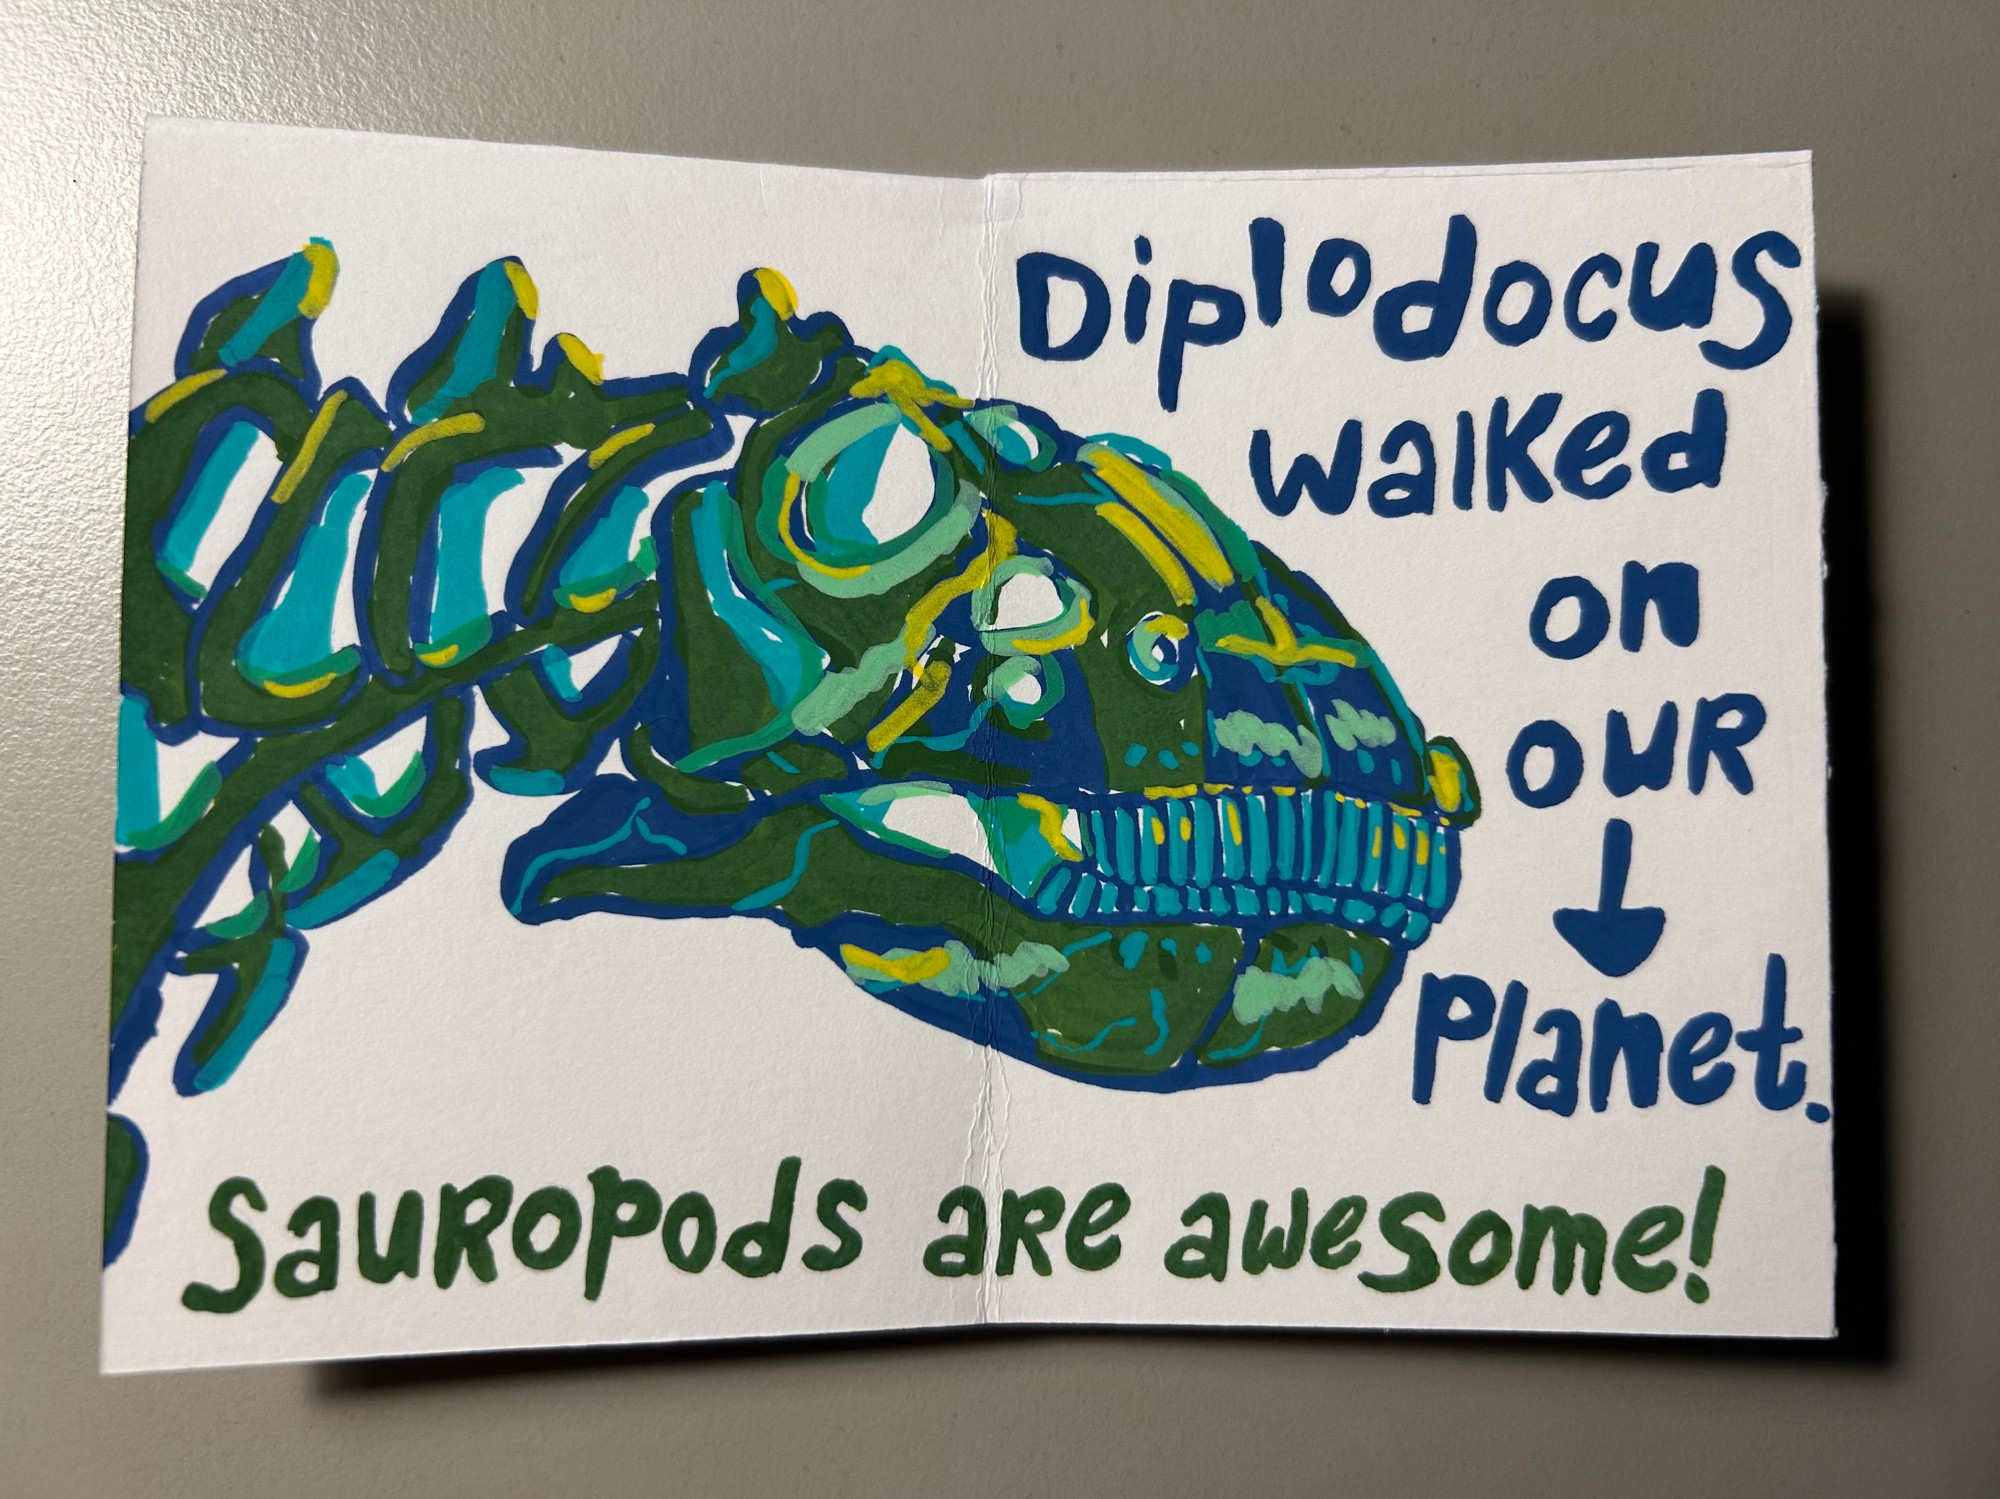 Diplodocus
walked
on
our
↓
Planet.
Sauropods are awesome!